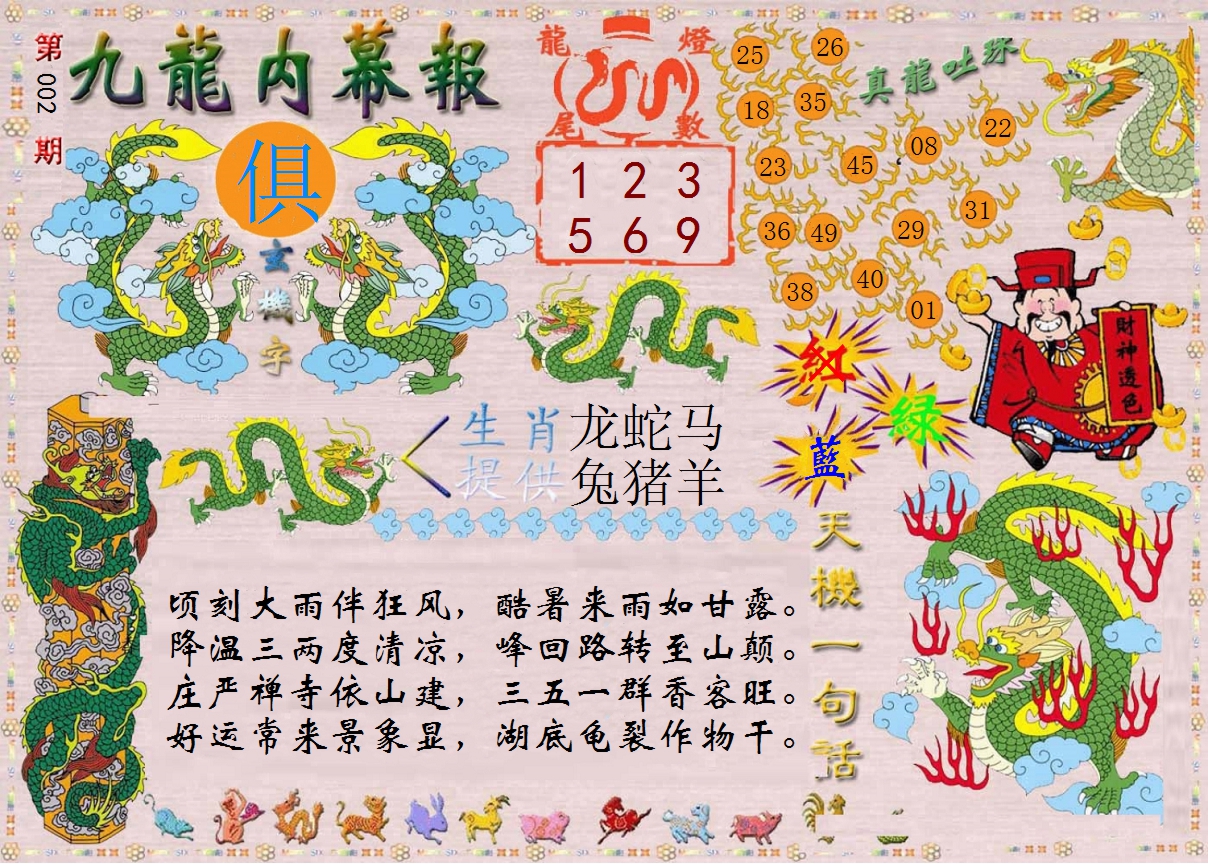 第002期
九龍内幕報
俱
玄機字
龍燈
尾數
1 2 3
5 6 9
真龍吐珠
25 26
18 35
23 45 08 22
36 49 29 31
38 40 01
財神透色
紅
綠
藍
生肖 龙蛇马
提供 兔猪羊
天機一句話
顷刻大雨伴狂风，酷暑来雨如甘露。
降温三两度清凉，峰回路转至山颠。
庄严禅寺依山建，三五一群香客旺。
好运常来景象显，湖底龟裂作物干。